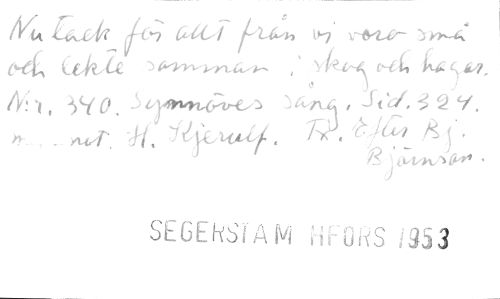 Nu tack för allt från vi voro små
och lekte samman i skog och hagar.
N:r. 340. Synnöves sång. Sid. 324.
not. H. Kjerulf. Tx. Efter Bj.
Björnson.
SEGERSTAM HFORS 1953